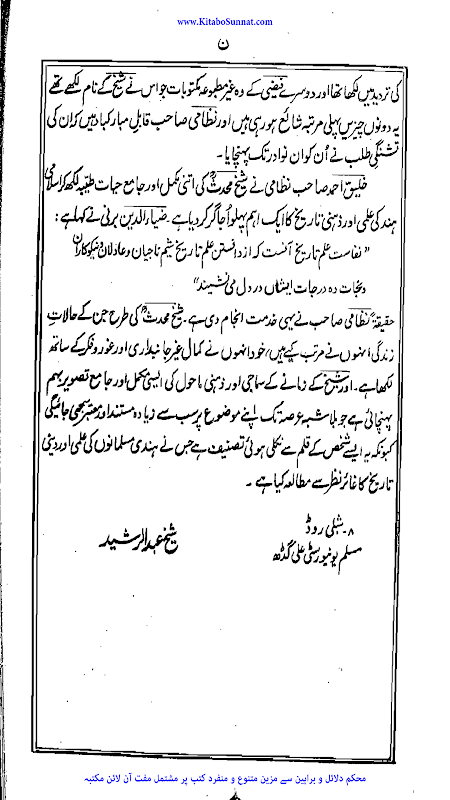 www.KitaboSunnat.com
ن
کی تردید میں لکھا تھا اور دوسرے فیضی کے وہ غیر مطبوعہ مکتوبات جو اس نے شیخ کے نام لکھے تھے
یہ دونوں چیزیں پہلی مرتبہ شائع ہو رہی ہیں اور نظامی صاحب قابلِ مبارکباد ہیں کہ ان کی
تشنگیِ طلب نے اُن کو ان نوادر تک پہنچایا۔
خلیق احمد صاحب نظامی نے شیخ محدثؒ کی اتنی مکمل اور جامع حیات طیبہ لکھ کر اسلامی
ہند کی علمی اور ذہنی تاریخ کا ایک اہم پہلو اُجاگر کر دیا ہے۔ ضیاء الدین برنی نے کہا ہے:
"نفاست علم تاریخ آنست کہ از دانستن علم تاریخ شیم ناجیان و عادلان و نیکوکاران
و نجات و درجات ایشاں در دل می نشیند"
حقیقۃً نظامی صاحب نے یہی خدمت انجام دی ہے۔ شیخ محدثؒ کی طرح جن کے حالاتِ
زندگی انہوں نے مرتب کیے ہیں، خود انھوں نے کمال غیر جانبداری اور غور و فکر کے ساتھ
لکھا ہے۔ اور شیخ کے زمانے کے سماجی اور ذہنی ماحول کی ایسی مکمل اور جامع تصویر بہم
پہنچائی ہے جو بلا شبہ عرصہ تک اپنے موضوع پر سب سے زیادہ مستند اور معتبر سمجھی جائیگی
کیونکہ یہ ایسے شخص کے قلم سے نکلی ہوئی تصنیف ہے جس نے ہندی مسلمانوں کی علمی اور دینی
تاریخ کا غائر نظر سے مطالعہ کیا ہے۔
۸۔ شبلی روڈ
شیخ عبدالرشید
مسلم یونیورسٹی علی گڈھ
محکم دلائل و براہین سے مزین متنوع و منفرد کتب پر مشتمل مفت آن لائن مکتبہ